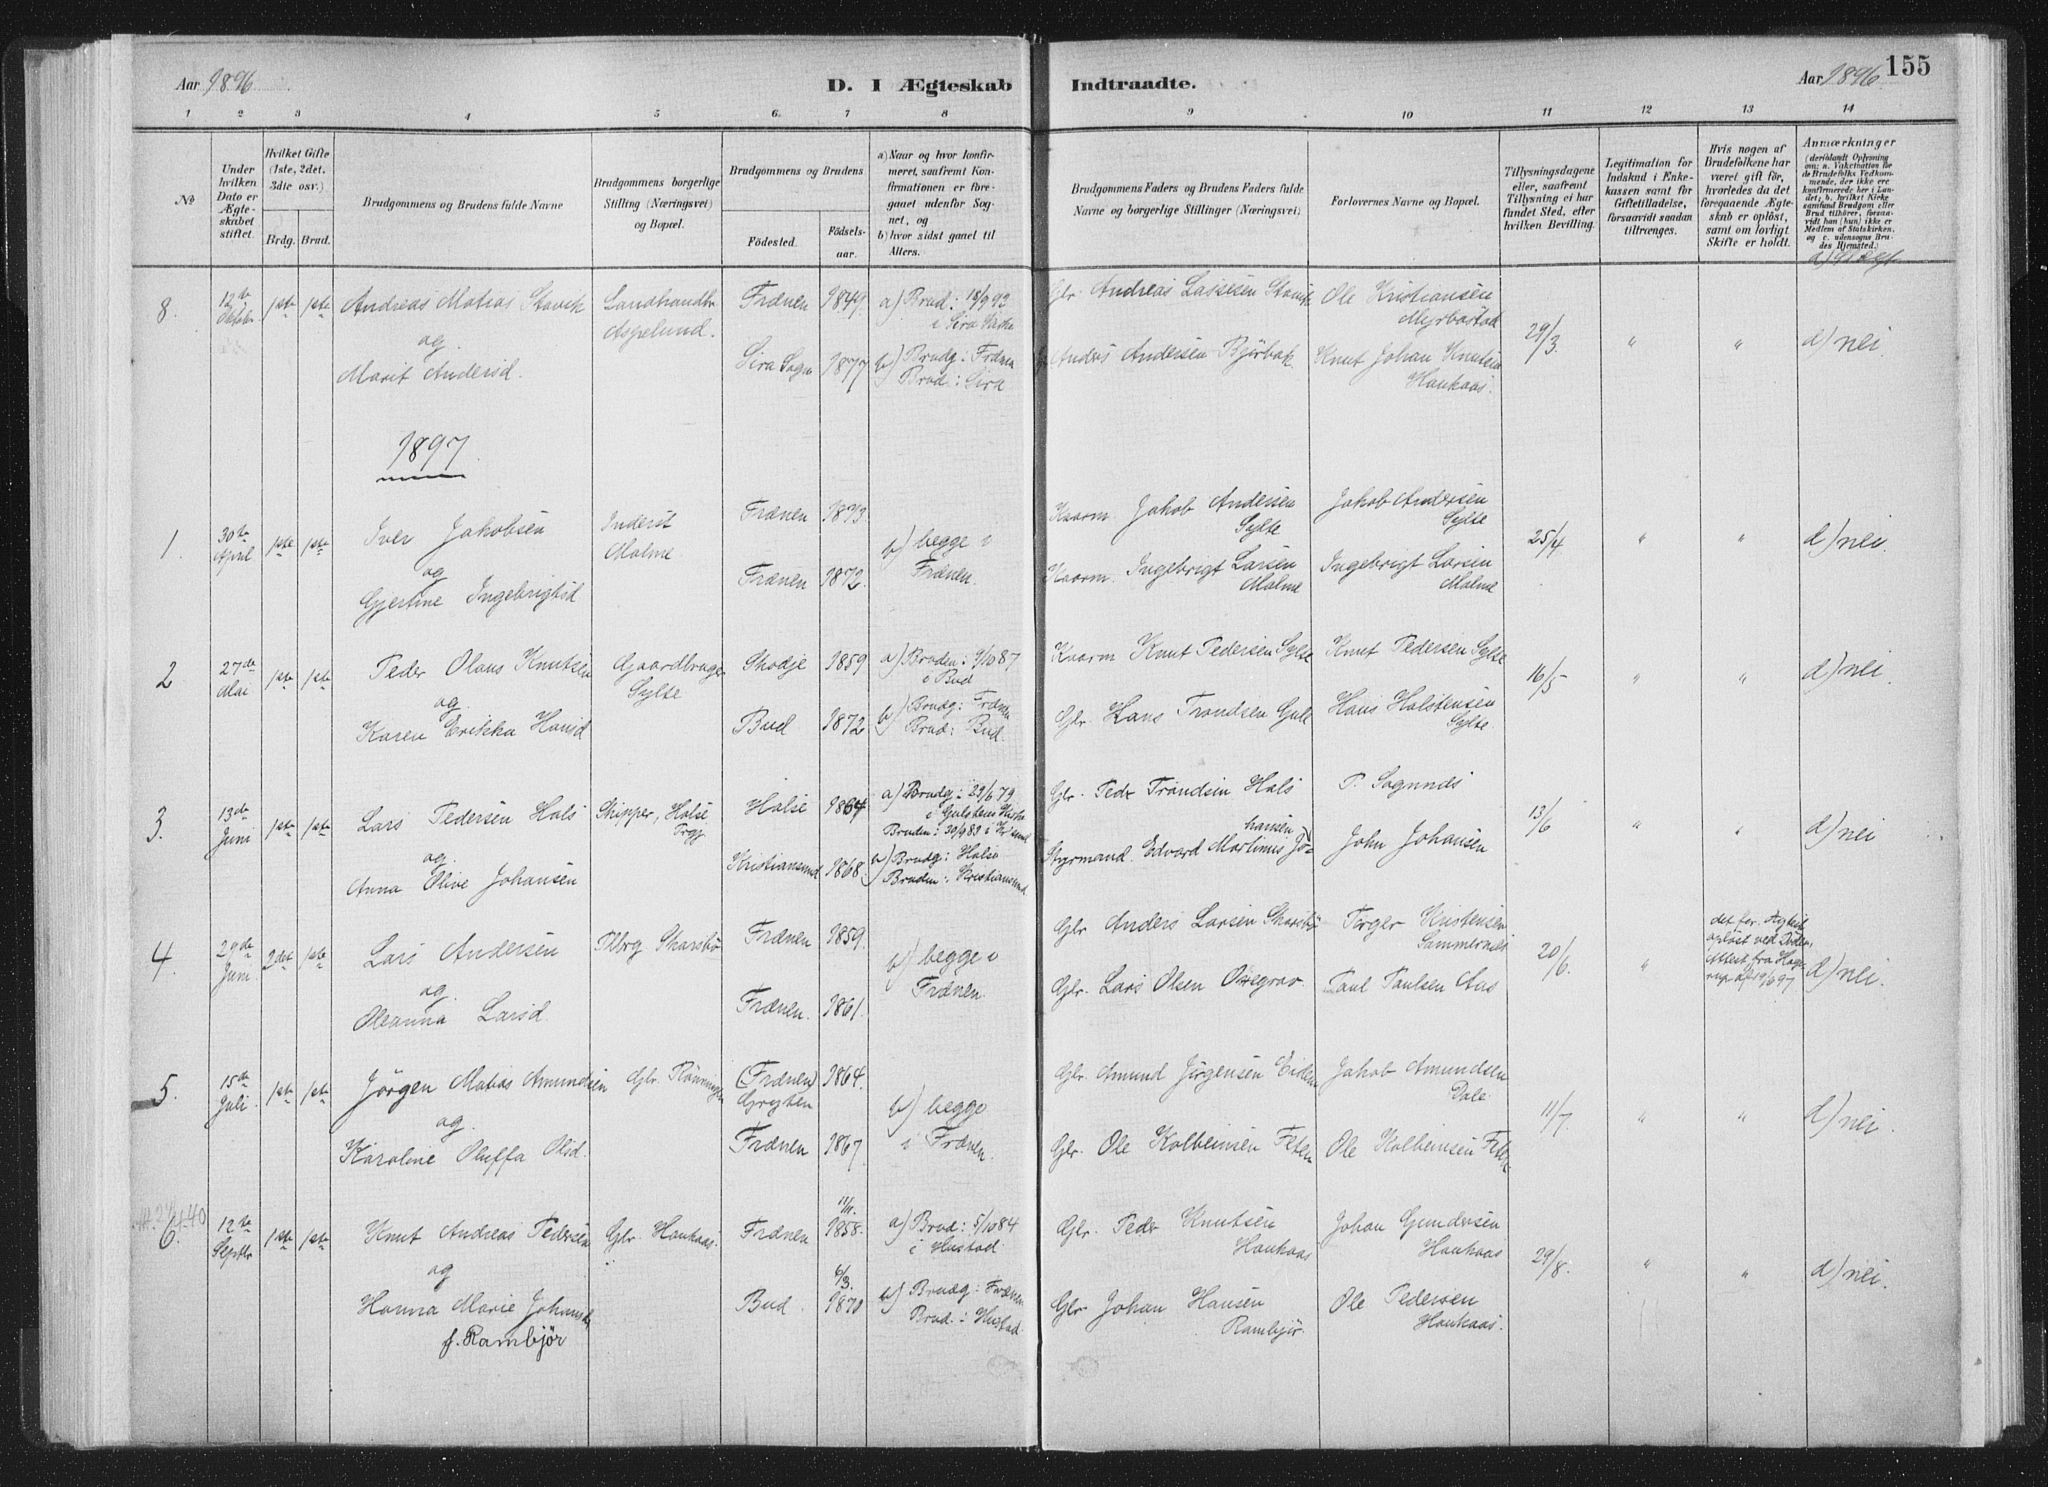 Aar 1896
D. I Ægteskab Indtraadte.
Aar 1896
155
1 2 3 4 5 6. 7 8 9 10 11 12 13 14
No
Under hvilken Dato er Ægteskabet stiftet.
Hvilket Gifte (1ste, 2det, 3dte osv.)
Brdg.
Brud.
Brudgommens og Brudens fulde Navne
Brudgommens borgerlige Stilling (Næringsvei) og Bopæl.
Brudgommens og Brudens
Fødested.
Fødselsaar.
a) Naar og hvor konfirmeret, saafremt Konfirmationen er foregaaet udenfor Sognet, og
b) hvor sidst gaaet til Alters.
Brudgommens Faders og Brudens Faders fulde Navne og borgerlige Stillinger (Næringsvei)
Forlovernes Navne og Bopæl.
Tillysningsdagene eller, saafremt Tillysning ei har fundet Sted, efter hvilken Bevilling.
Legitimation for Indskud i Enkekassen samt for Giftetilladelse, forsaavidt saadan tiltrænges.
Hvis nogen af Brudefolkene har været gift før, hvorledes da det foregaaende Ægteskab er opløst, samt om lovligt Skifte er holdt.
Anmærkninger
(deriblandt Oplysning om: a. Vakcination for de Brudefolks Vedkommende, der ikke ere konfirmerede her i Landet; b. hvilket Kirkesamfund Brudgom eller Brud tilhører, forsaavidt han (hun) ikke er Medlem af Statskirken, og c. udensogns Brudes Hjemsted.)
8.
12te Oktobr
1ste 1ste
Andreas Matias Stavik
og
Marit Andersd.
Landhandler
Aspelund.
Frænen 1849.
Sira Sogn 1877
a) Brud: 18/9 92
i Sira Kirke
b) Brudg: Frænen
Brud: Sira
Glr. Andreas Lassesen Stavik
Anders Andersen Bjørbak.
Ole Kristiansen
Myrbostad
Knut Johan Knutsen
Haukaas.
29/3.
"
"
d) nei.
1897
1.
30te April
1ste 1ste
Iver Jakobsen
og
Gjertine Ingebrigtsd
Inderst
Malme.
Frænen 1873.
Frænen 1872.
b) begge i
Frænen.
Kaarm. Jakob Andersen
Sylte
Kaarm. Ingebrigt Larsen
Malme
Jakob Andersen
Sylte
Ingebrigt Larsen
Malme
25/4
"
"
d) nei.
2
27de Mai
1ste 1ste
Peder Olaus Knutsen
og
Karen Erikka Hansd
Gaardbruger
Sylte
Skodje 1859
Bud 1872
a) Bruden: 9/10 87
i Bud
b) Brudg: Frænen
Brud: Bud.
Kaarm Knut Pedersen Sylte
Glr. Hans Trondsen Gule
Knut Pedersen Sylte
Hans Halstensen
Sylte.
16/5
"
"
d) nei.
3.
13de Juni
1ste 1ste
Lars Pedersen Hals
og
Anna Olive Johansen
Skipper, Halse
Prgj
Halse 1864
Kristiansund 1868.
a) Brudg: 29/6 79
Bruden: 30/9 83 i Krsund
b) Brudg: Halse
Bruden: Kristiansund
Glr. Peder Trondsen Hals
Styrmand. Edvard Martinus Johansen
P. Sognnes
John Johansen
13/6
"
"
d) nei
4.
29de Juni
2det 1ste
Lars Andersen
og
Oleanna Larsd.
Plbrg Skarsbø
Frænen 1859.
Frænen. 1861.
b) begge i
Frænen.
Glr Anders Larsen Skarsbø
Glr. Lars Olsen Orregrav.
Torger Kristensen
Sammernes
Paul Paulsen Aas
20/6.
"
det for. Ægtesk
opløst ved Døden.
Attest fra
af 19/6 97
d) nei.
5.
15de Juli.
1ste 1ste
Jørgen Matias Amundsen
og
Karoline Oluffa Olsd.
Glr. Rønningen
(Frænen) 1864.
Grytten
Frænen 1867.
b) begge
i Frænen.
Glr. Amund Jørgensen Eiden
Glr. Ole Kolbeinsen Feten
Jakob Amundsen
Dale
Ole Kolbeinsen Feten
11/7.
"
"
d) nei.
6.
12te Septbr
1ste 1ste
Knut Andreas Pedersen
og
Hanna Marie Johansd
f. Rambjør
Glr. Haukaas.
Frænen 1858.
Bud. 6/3. 1870
a) Brud: 5/10 84
i Hustad
b) Brudg: Frænen
Brud.: Hustad.
Glr. Peder Knutsen
Haukaas
Glr Johan Hansen
Rambjør.
Johan Gundersen
Haukaas
Ole Pedersen
Haukaas.
29/8.
"
"
d) nei.